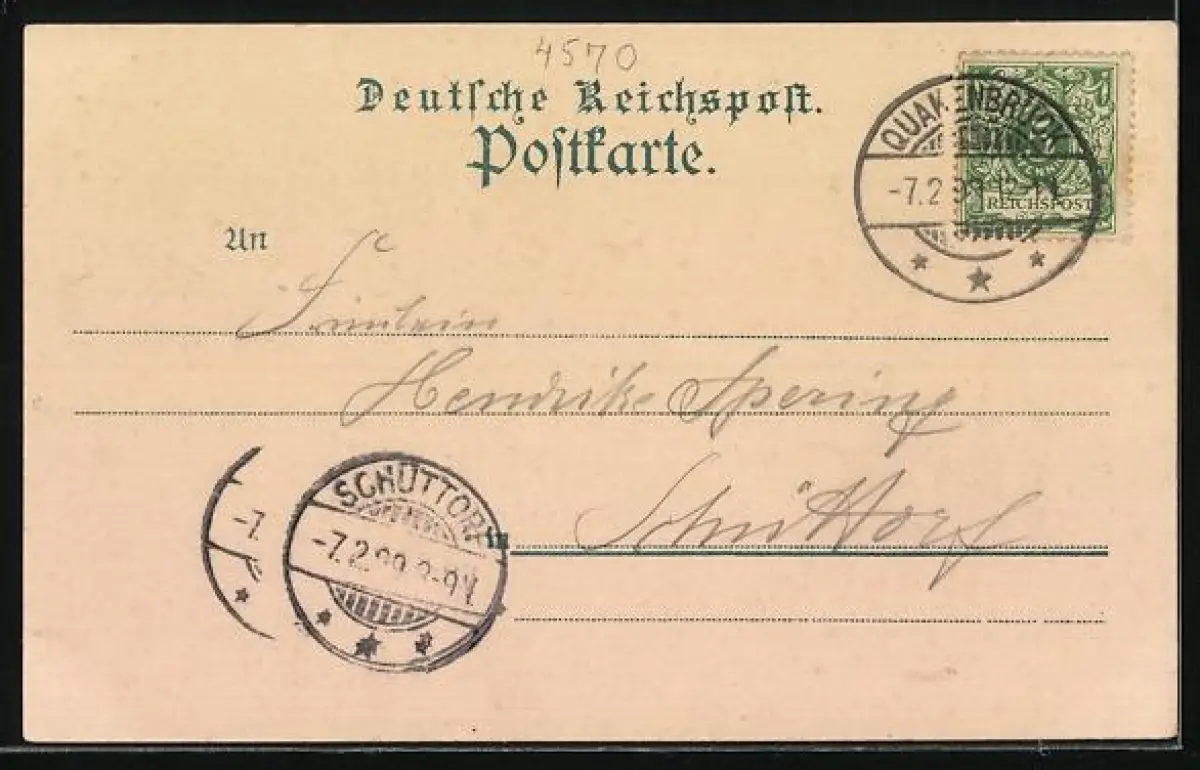 4570
Deutsche Reichspost.
Postkarte.
QUAKENBRÜCK
-7.2.99 12-1N
REICHSPOST
An
Fräulein
Hendrike Spering
Schüttorf
SCHÜTTORF
-7.2.99 8-9N
-7.